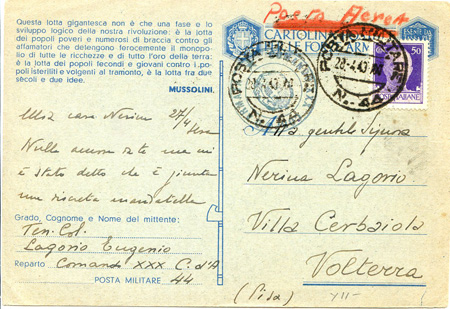 Questa lotta gigantesca non è che una fase e lo
sviluppo logico della nostra rivoluzione: è la lotta
dei popoli poveri e numerosi di braccia contro gli
affamatori che detengono ferocemente il monopo-
lio di tutte le ricchezze e di tutto l'oro della terra:
è la lotta dei popoli fecondi e giovani contro i po-
poli isteriliti e volgenti al tramonto, è la lotta tra due
secoli e due idee.
MUSSOLINI.
Posta Aerea
CARTOLINA
FORZE ARMATE
POSTA MILITARE
28-4-43
N. 44
POSTA MILITARE
28-4-43
N. 44
50
POSTE ITALIANE
27/4
Mia cara Nerina
Nulla ancora
stato detto che è giunta
una
Grado, Cognome e Nome del mittente:
Ten. Col.
Lagorio Eugenio
Reparto Comando XXX C. d'A
POSTA MILITARE 44
Alla gentile Signora
Nerina Lagorio
Villa Cerbaiola
Volterra
(Pisa)